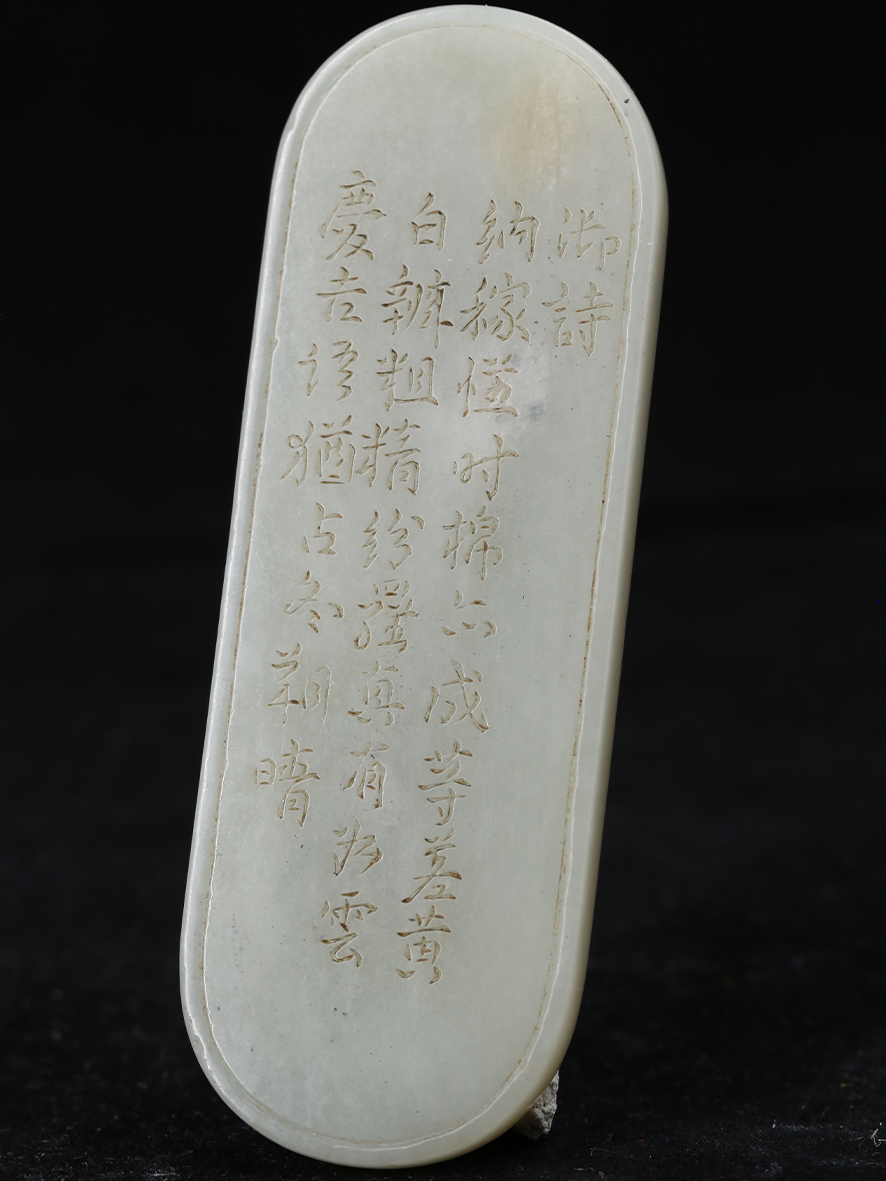 御詩
納稼惟时棉亦成等差黄
白辨粗精紛羅真有如雲
慶吉語猶占冬朔晴